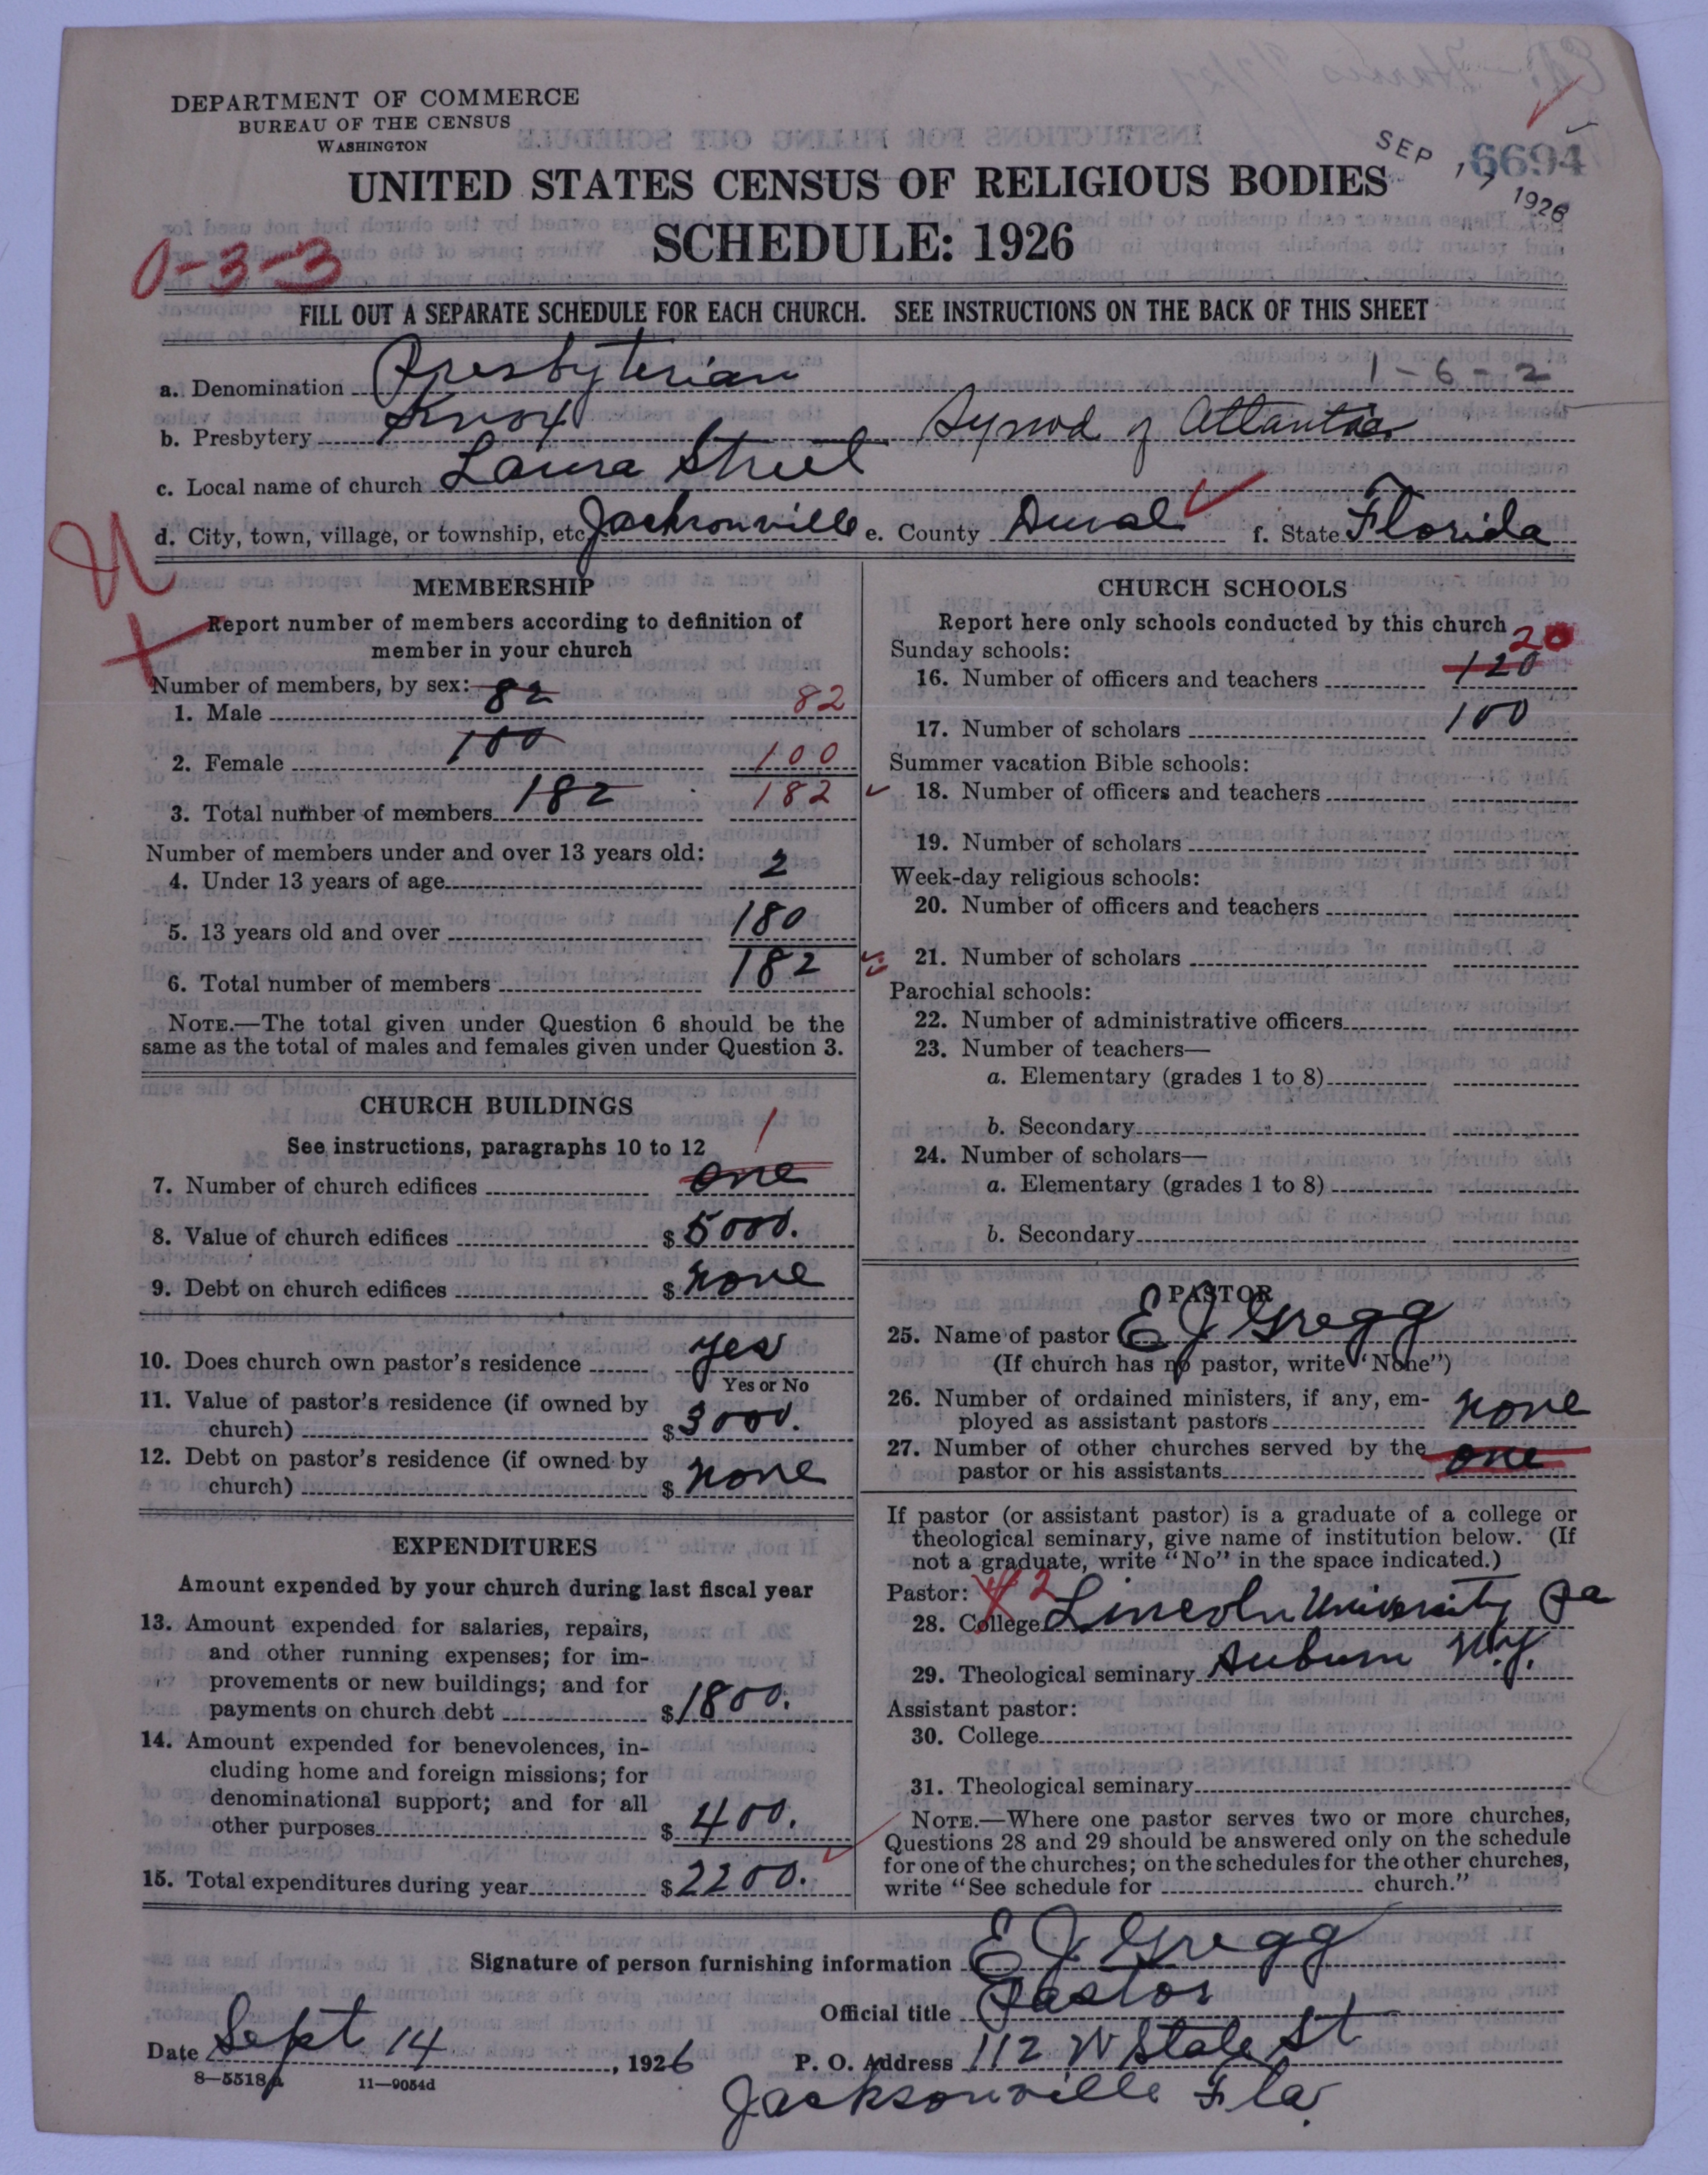 DEPARTMENT OF COMMERCE
BUREAU OF THE CENSUS
WASHINGTON
SEP 17 1926
6694
UNITED STATES CENSUS OF RELIGIOUS BODIES
SCHEDULE: 1926
0-3-3
FILL OUT A SEPARATE SCHEDULE FOR EACH CHURCH. SEE INSTRUCTIONS ON THE BACK OF THIS SHEET
1-6-2
a. Denomination Presbyterian
b. Presbytery Knox Synod of Atlantic
c. Local name of church Laura Street
d. City, town, village, or township, etc. Jacksonville e. County Duval f. State Florida
MEMBERSHIP
Report number of members according to definition of
member in your church
Number of members, by sex:
1. Male 82 82
2. Female 100 100
3. Total number of members 182 182
Number of members under and over 13 years old:
4. Under 13 years of age 2
5. 13 years old and over 180
6. Total number of members 182
NOTE.—The total given under Question 6 should be the
same as the total of males and females given under Question 3.
CHURCH BUILDINGS
See instructions, paragraphs 10 to 12
1
7. Number of church edifices one
8. Value of church edifices $5000.
9. Debt on church edifices $none
10. Does church own pastor's residence yes
Yes or No
11. Value of pastor's residence (if owned by
church) $3000.
12. Debt on pastor's residence (if owned by
church) $none
EXPENDITURES
Amount expended by your church during last fiscal year
13. Amount expended for salaries, repairs,
and other running expenses; for im-
provements or new buildings; and for
payments on church debt $1800.
14. Amount expended for benevolences, in-
cluding home and foreign missions; for
denominational support; and for all
other purposes $400.
15. Total expenditures during year $2200.
CHURCH SCHOOLS
Report here only schools conducted by this church
Sunday schools: 20
16. Number of officers and teachers 120
17. Number of scholars 100
Summer vacation Bible schools:
18. Number of officers and teachers
19. Number of scholars
Week-day religious schools:
20. Number of officers and teachers
21. Number of scholars
Parochial schools:
22. Number of administrative officers
23. Number of teachers—
a. Elementary (grades 1 to 8)
b. Secondary
24. Number of scholars—
a. Elementary (grades 1 to 8)
b. Secondary
PASTOR
25. Name of pastor E J Gregg
(If church has no pastor, write "None")
26. Number of ordained ministers, if any, em-
ployed as assistant pastors none
27. Number of other churches served by the
pastor or his assistants one
If pastor (or assistant pastor) is a graduate of a college or
theological seminary, give name of institution below. (If
not a graduate, write "No" in the space indicated.)
Pastor: 2
28. College Lincoln University Pa
29. Theological seminary Auburn N.Y.
Assistant pastor:
30. College
31. Theological seminary
NOTE.—Where one pastor serves two or more churches,
Questions 28 and 29 should be answered only on the schedule
for one of the churches; on the schedules for the other churches,
write "See schedule for church."
Signature of person furnishing information E J Gregg
Official title Pastor
Date Sept 14, 1926 P. O. Address 112 W State St
8—5518a 11—9054d
Jacksonville Fla.